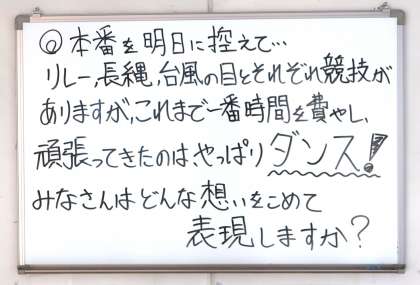 ◎本番を明日に控えて…
リレー,長縄,台風の目とそれぞれ競技が
ありますが,これまで一番時間を費やし,
頑張ってきたのはやっぱりダンス!
みなさんはどんな想いをこめて
表現しますか?